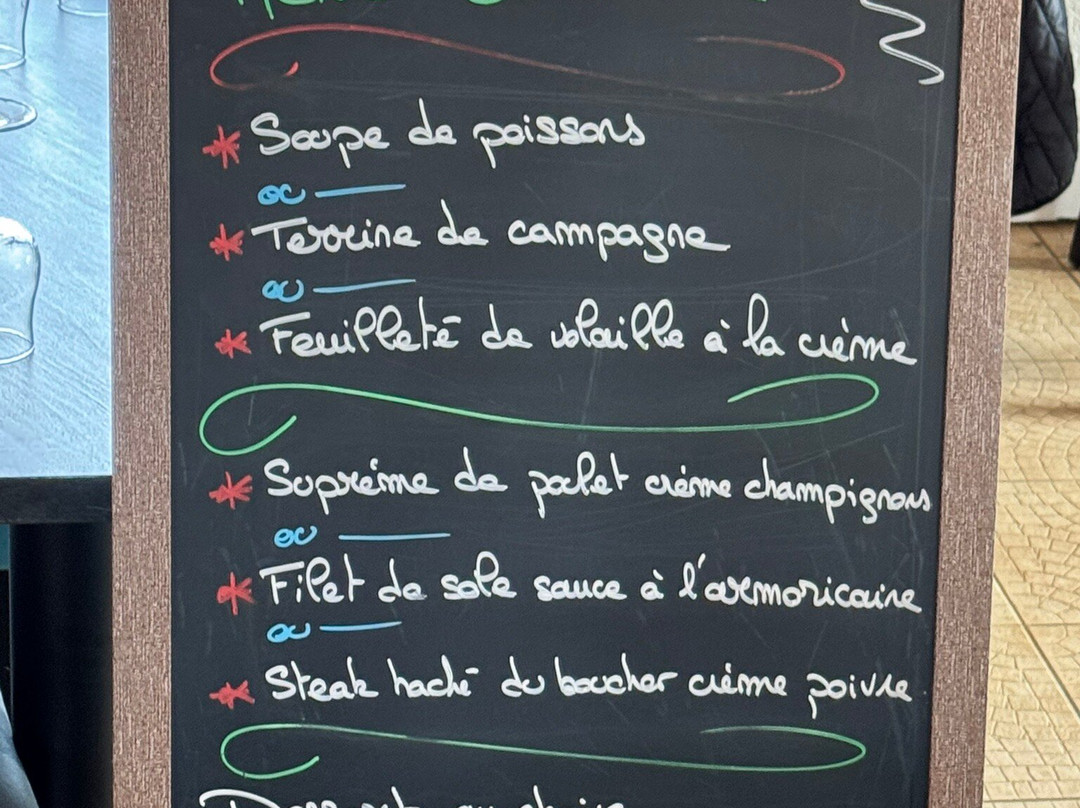 * Soupe de poissons
ou
* Terrine de campagne
ou
* Feuilleté de volaille à la crème
* Suprême de poulet crème champignons
ou
* Filet de sole sauce à l'armoricaine
ou
* Steak haché du boucher crème poivre